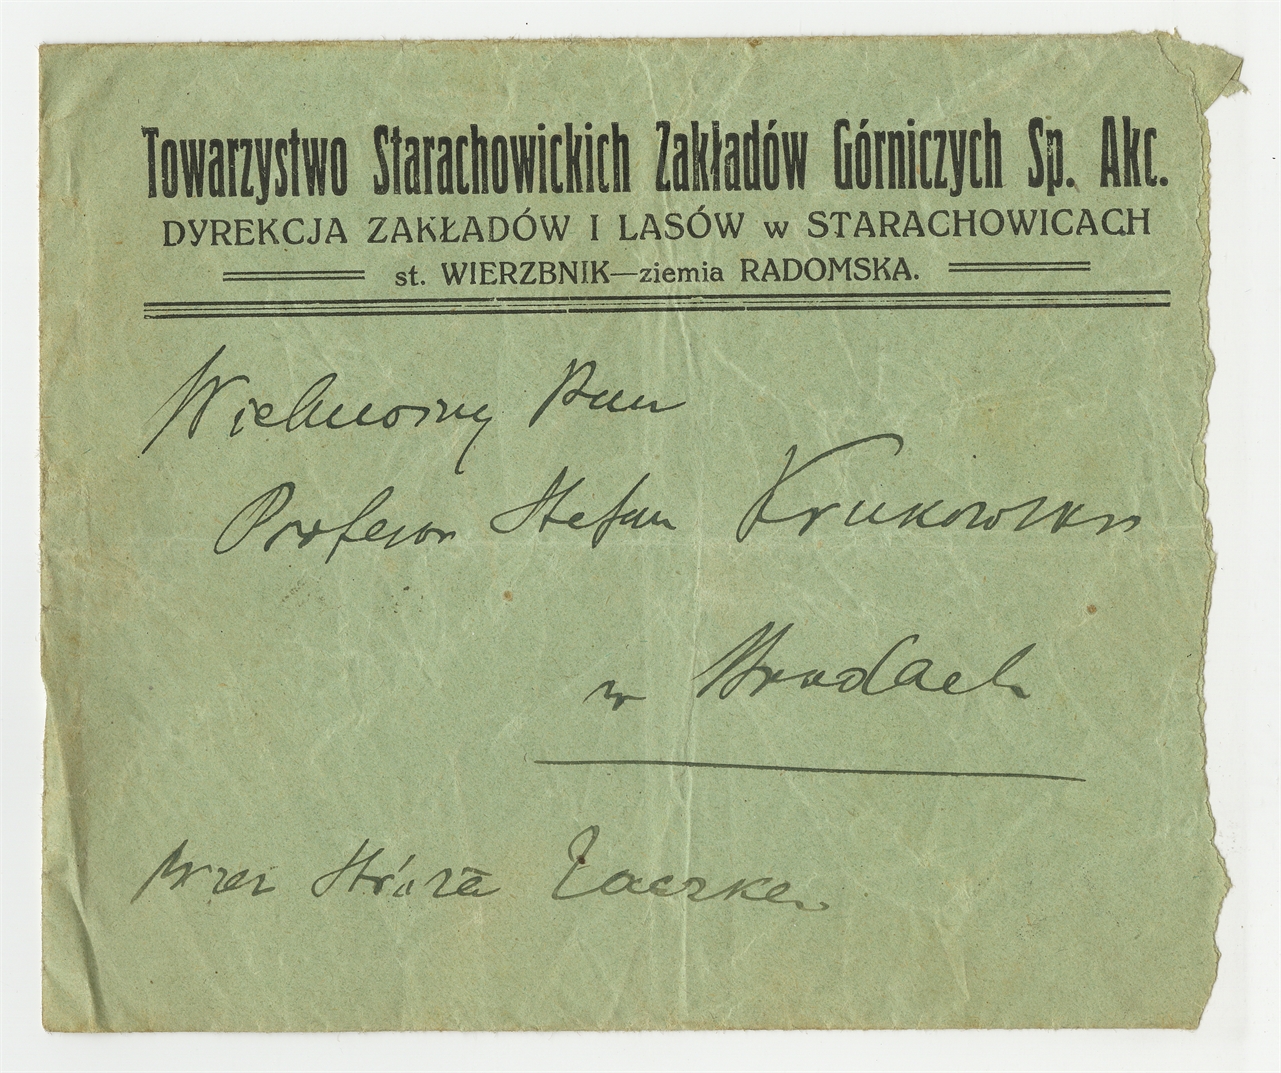 Towarzystwo Starachowickich Zakładów Górniczych Sp. Akc.
DYREKCJA ZAKŁADÓW I LASÓW w STARACHOWICACH
st. WIERZBNIK—ziemia RADOMSKA.
Wielmożny Pan
Profesor Stefan Krukowski
w Brodach
przez Stróża